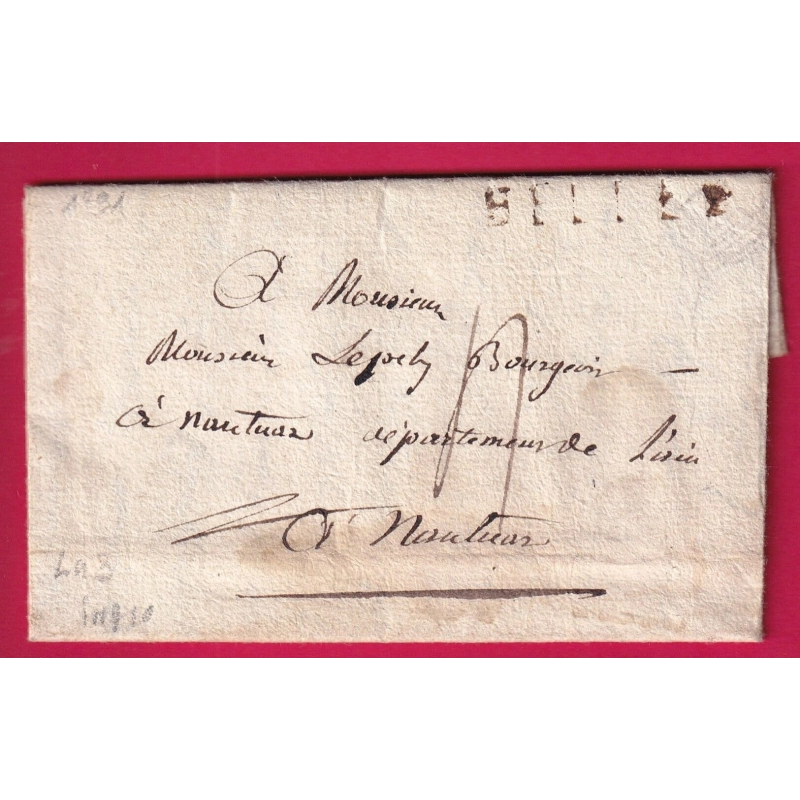 1791
BELLEY
A Monsieur
Monsieur Bourgeois
à nantua département de L'ain
A Nantua